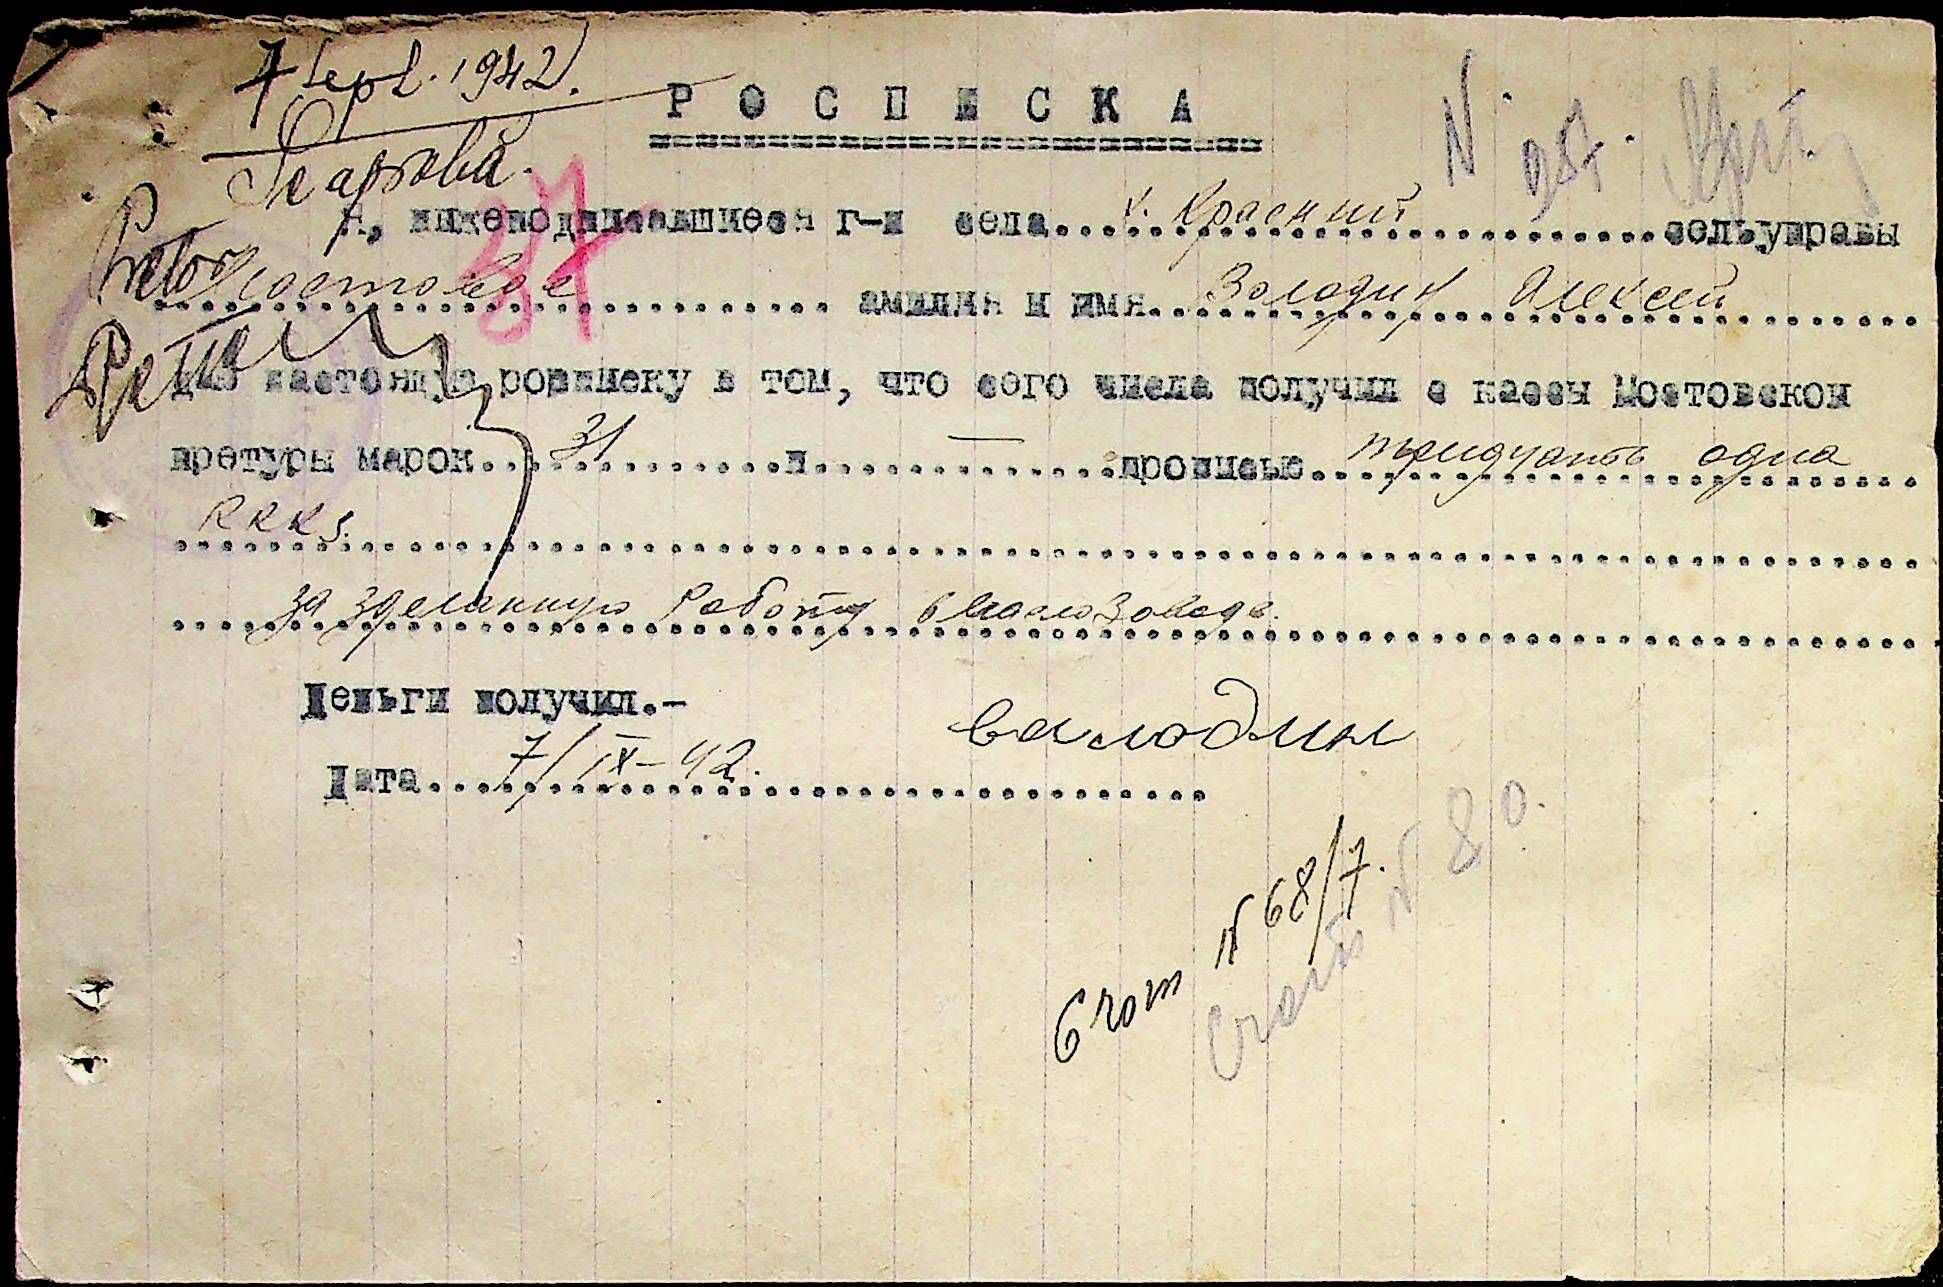 7 Sept. 1942.
РОСПИСКА
N.
37
Я, нижеподписавшиеся г-н села....х. Красный....сельуправы
....Мостовое.... амилия и имя....Володин Алексей....
Даю настоящую росписку в том, что сего числа получил с кассы Мостовской
претуры марок....31....п....—....прописью....тридцать одна....
RKKS.
за зделанную работу в маслозаводе.
Деньги получил.-
валодин
Дата....7/IX-42.
Счот N 68/7.
Счот N 80.